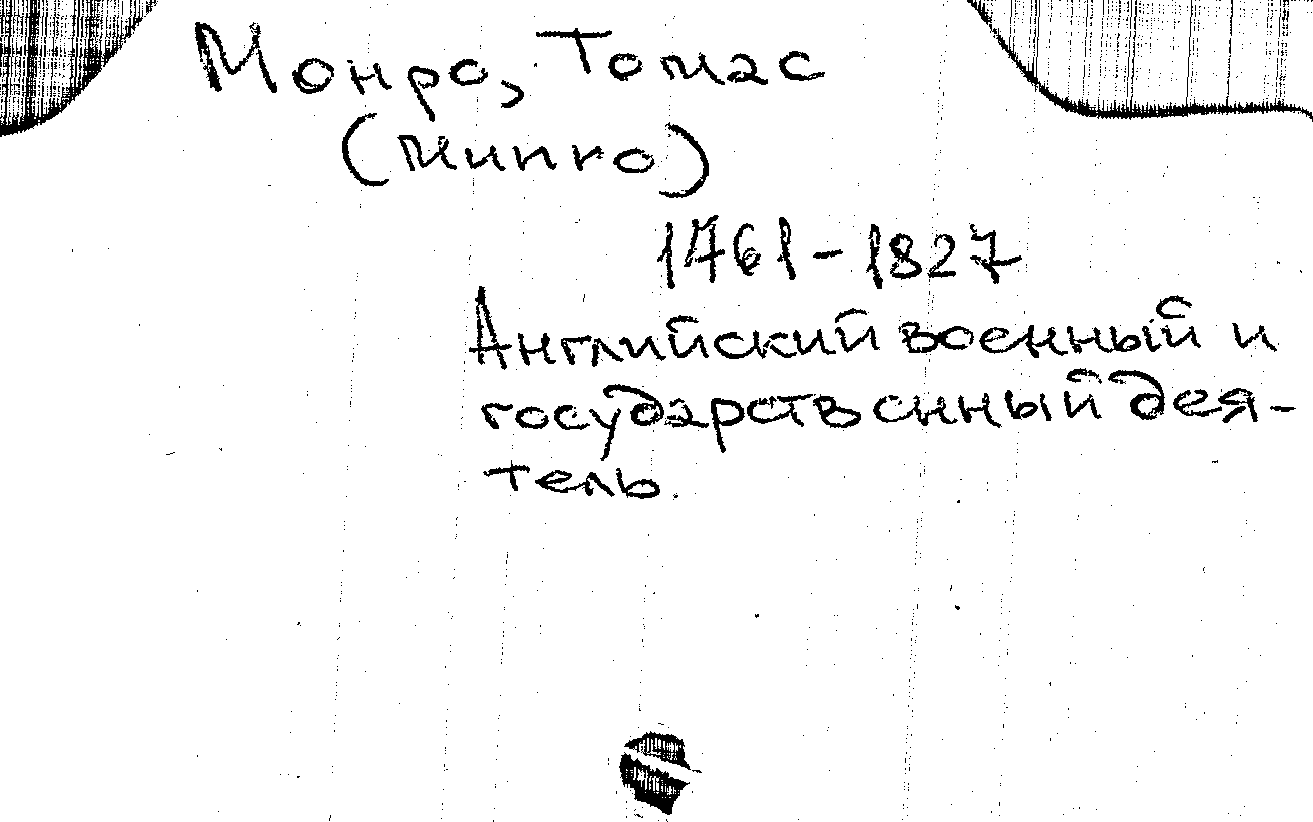 Монро, Томас
(Мипко)
1761-1827
Английский военный и
государственный дея-
тель.